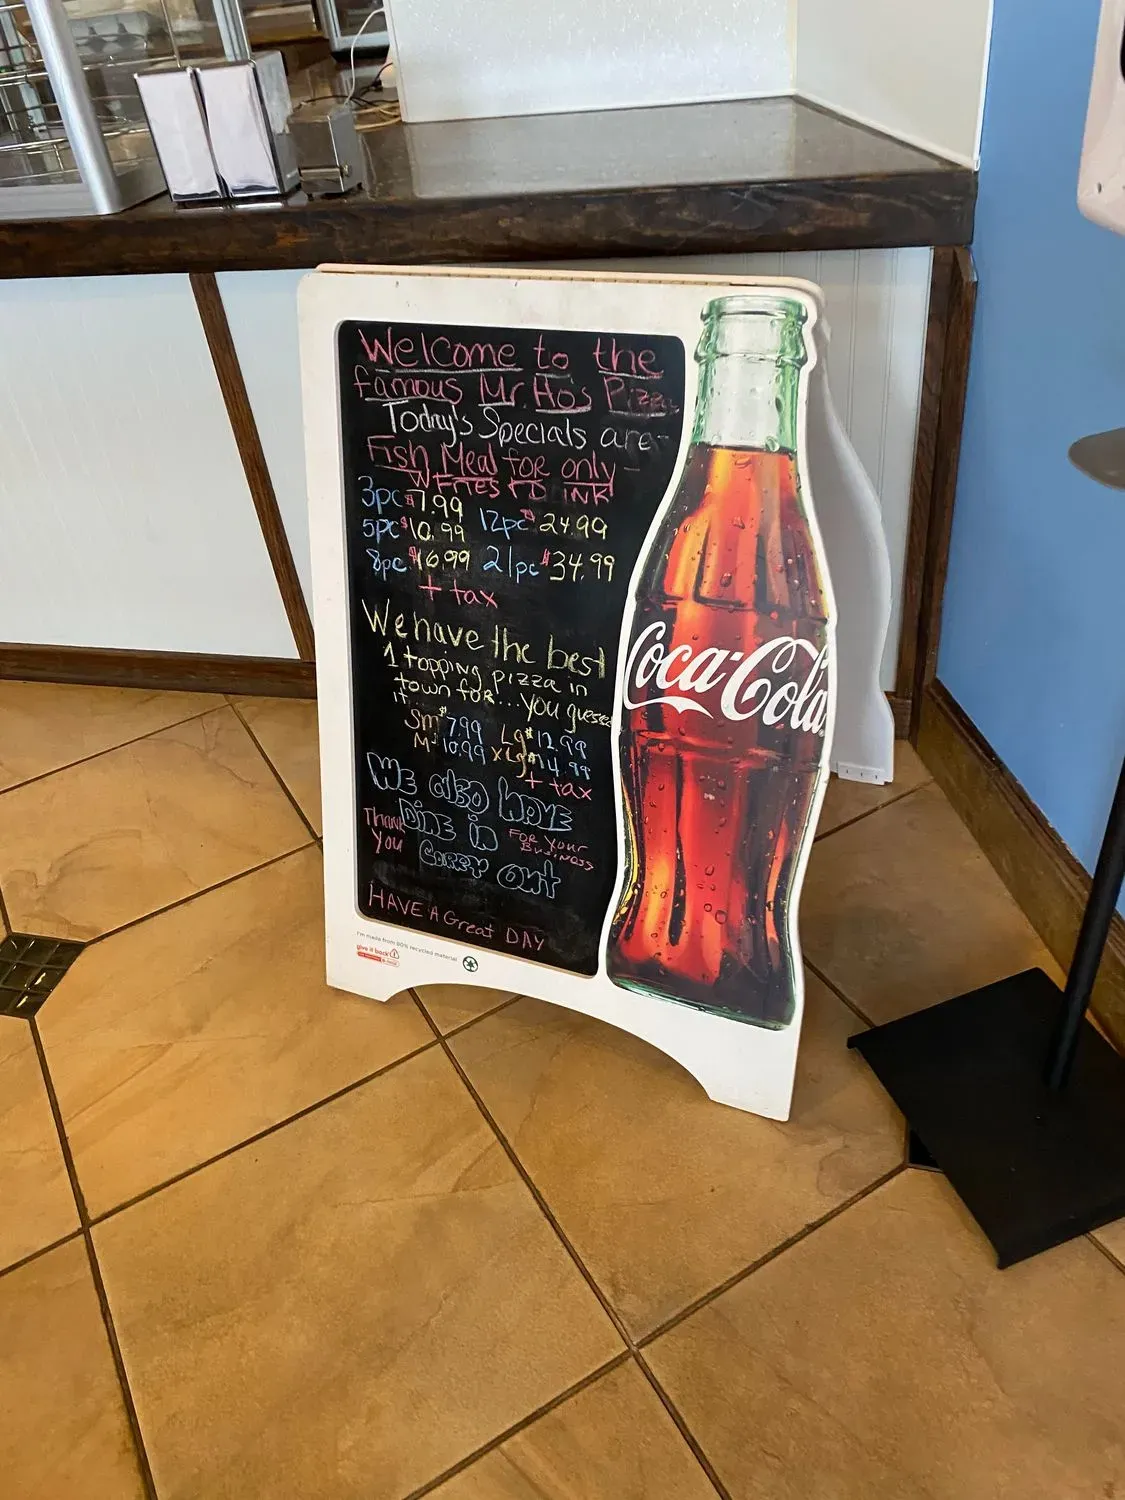 Welcome to the
famous Mr. Ho's Pizza
Today's Specials are-
Fish Meal for only-
W FRIES & D INK
3pc $7.99
5pc $10.99 12pc $24.99
8pc $16.99 21pc $34.99
+ tax
We have the best
1 topping pizza in
town for...you guessed
it..
Sm $7.99 Lg $12.99
M- 10.99 XLg $14.99
+ tax
WE also have
DINE in
Thank you
FOR YOUR
BUSINESS
Carry Out
HAVE A Great DAY
Coca-Cola
I'm made from 80% recycled material
give it back